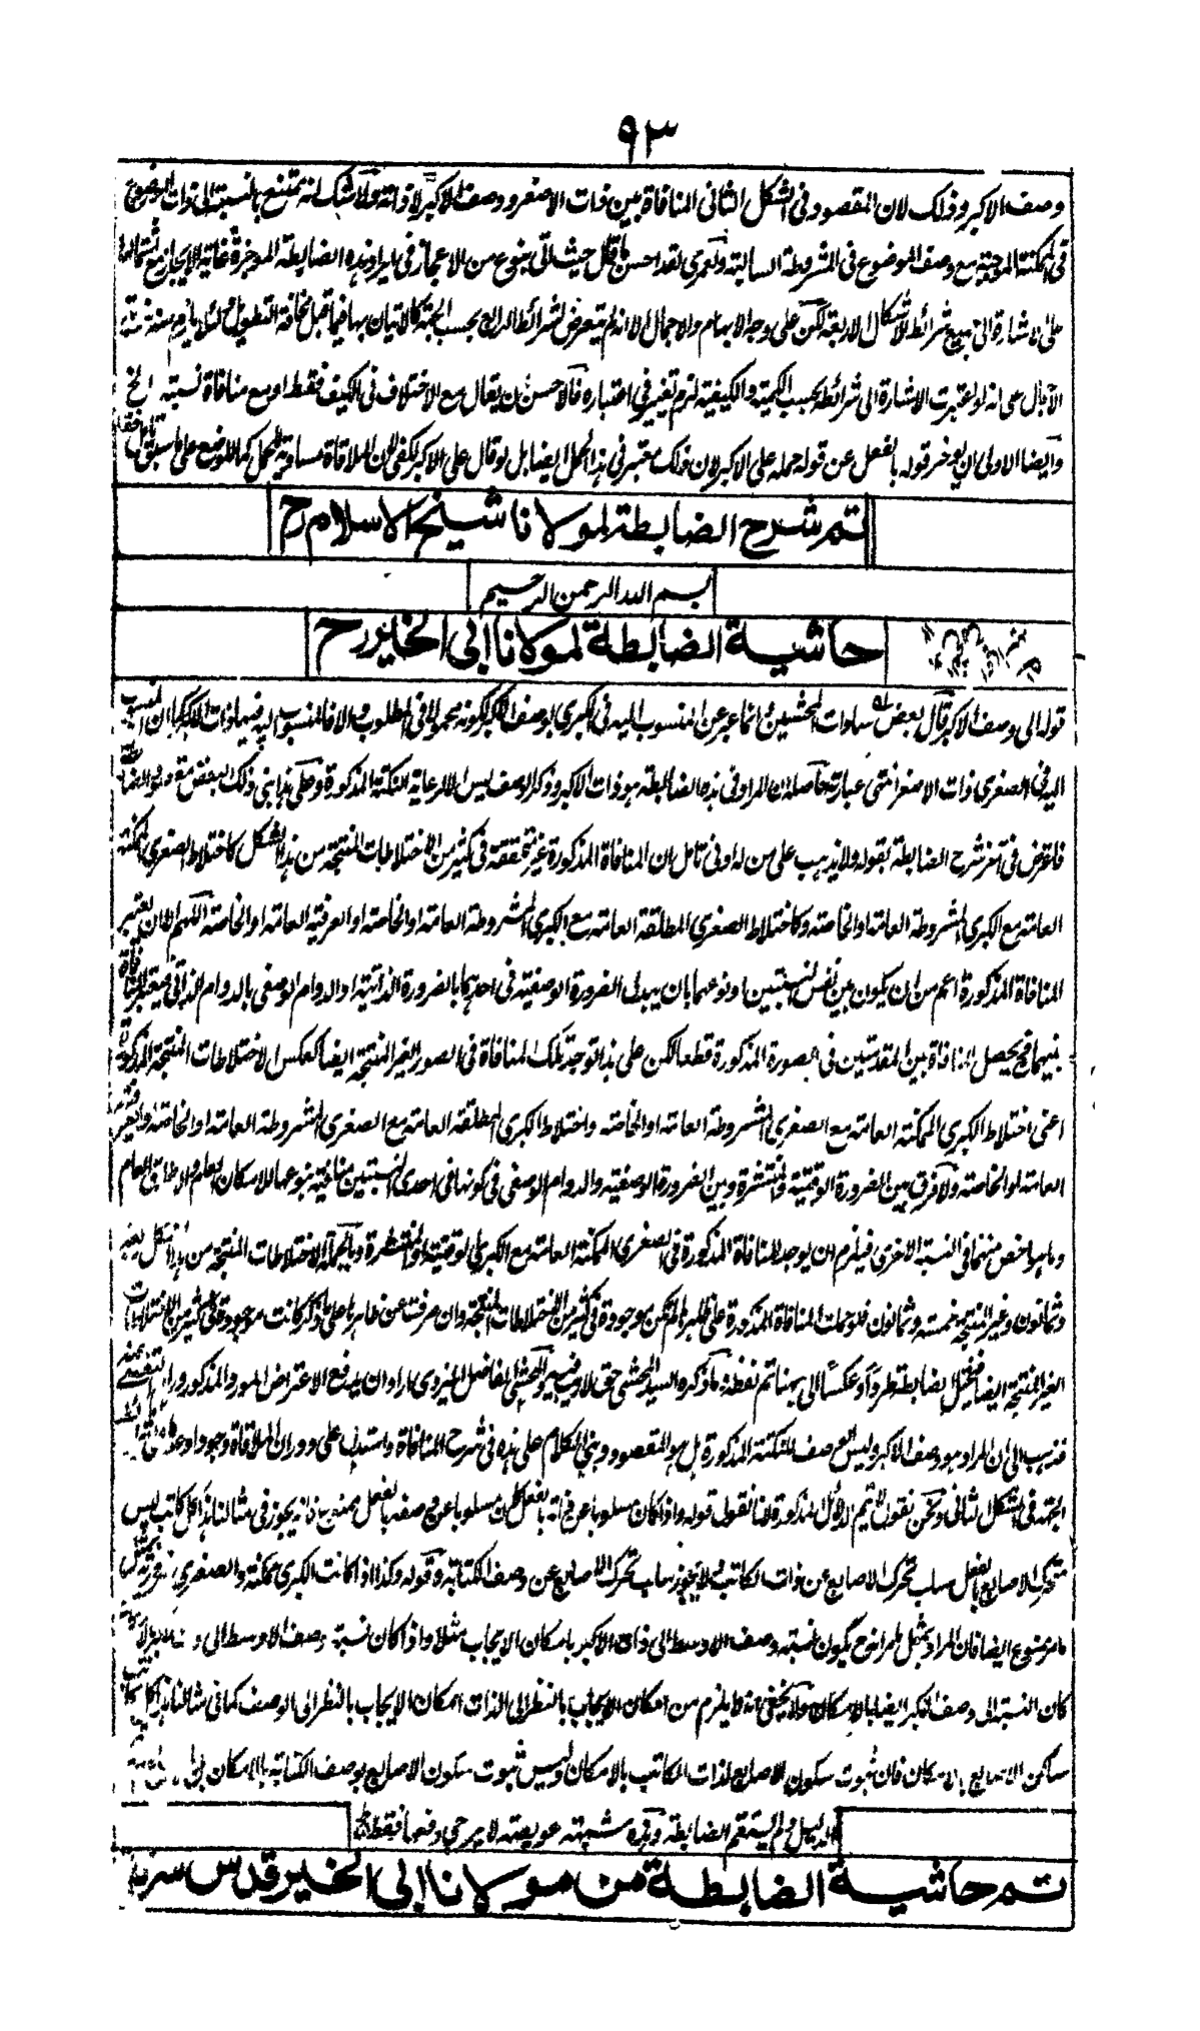 ٩٣
وصف الاكبر وذلك لان المقصود فى الشكل الثانى المنافاة بين ذات الاصغر ووصف الاكبر لا ذاته ولا شك انه يمتنع بالنسبة الى ذات الموضوع
فى الممكنة الموجبة مع وصف الموضوع فى المشروطة السالبة ولعمرى لقد احسن حيث اتى بنوع من الاعجاز فى ايراد هذه الضابطة الموجزة غاية الايجاز مع اشتمالها
على الاشارة الى جميع شرائط الاشكال الاربعة لكن على وجه الابهام والاجمال الا انه لم يتعرض لشرائط الرابع بحسب الجهة كالاتيان بها فيما قبل مخافة التطويل
الاجمال على انه لو اعتبرت الاشارة الى شرائطه بحسب الكمية والكيفية لزم تغير فى اعتباره فالاحسن ان يقال مع الاختلاف فى الكيف فقط او مع منافاة نسبة الخ
وايضا الاولى ان يوخر قوله بالفعل عن قوله حمله على الاكبر لان ذلك معتبر فى هذا الحمل ايضا بل لو قال على الاكبر لكفى لان الملاقاة مساوية للحمل كما للوضع على ما سبق
تم شرح الضابطة لمولانا شيخ الاسلام رح
بسم الله الرحمن الرحيم
حاشية الضابطة لمولانا ابى الخير رح
قوله الى وصف الاكبر قال بعض سادات المحشين انما عبر عن المنسوب اليه فى الكبرى بوصف الاكبر لكونه محمولا فى المطلوب والا فالمنسوب اليه فيها ذات الاكبر كما ان المنسوب
اليه فى الصغرى ذات الاصغر انتهى عبارته حاصله ان المراد فى هذه الضابطة هو ذات الاكبر وذكر الوصف ليس الا لرعاية النكتة المذكورة وعلى هذا بنى ذلك البعض
فاعترض فى آخر شرح الضابطة بقوله ولا يذهب على من له ادنى تامل ان المنافاة المذكورة غير متحققة فى كثير من الاختلاطات المنتجة من هذا الشكل كاختلاط الصغرى الممكنة
العامة مع الكبرى المشروطة العامة او الخاصة وكاختلاط الصغرى المطلقة العامة مع الكبرى المشروطة العامة او الخاصة او العرفية العامة او الخاصة اللهم الا ان يعتبر
المنافاة المذكورة اعم من ان يكون بين نفس النسبتين او نوعهما بان يبدل الضرورة الوصفية فى احدهما بالضرورة الذاتية او الدوام الوصفى بالدوام الذاتى فيعتبر المنافاة
بينهما فح يحصل المنافاة بين المقدمتين فى الصورة المذكورة قطعا لكن على هذا توجد تلك المنافاة فى الصور الغير المنتجة ايضا كعكس الاختلاطات المنتجة المذكورة
اعنى اختلاط الكبرى الممكنة العامة مع الصغرى المشروطة العامة او الخاصة واختلاط الكبرى المطلقة العامة مع الصغرى المشروطة العامة او الخاصة او العرفية
العامة او الخاصة ولا فرق بين الضرورة الوقتية والمنتشرة وبين الضرورة الوصفية والدوام الوصفى فى كونها فى احدى النسبتين منافية بنوعها للامكان العام والاطلاق العام
وما هو اخص منهما فى النسبة الاخرى فيلزم ان يوجد المنافاة المذكورة فى الصغرى الممكنة العامة مع الكبرى الوقتية او المنتشرة وبالجملة الاختلاطات المنتجة من هذا الشكل
وثمانون وغير المنتجة خمسة وثمانون فلو حملت المنافاة المذكورة على ظاهرها لم تكن موجودة فى كثير من الاختلاطات المنتجة وان صرفت عن ظاهرها كانت موجودة فى كثير من الاختلاطات
الغير المنتجة ايضا فيختل الضابطة طردا وعكسا الى ههنا تم لفظه ما ذكره السيد المحشى حق لا ريب فيه والمحشى الفاضل اليزدى لما اراد ان يدفع الاعتراض المورد المذكور
فذهب الى ان المراد هو وصف الاكبر وليس الوصف للنكتة المذكورة بل هو المقصود وبنى الكلام على هذه فى شرح المنافاة واستدل على دوران الملاقاة وجودا وعدما
الجهة فى الشكل الثانى ونحن نقول لا يتم الدلائل المذكورة لانا نقول قوله واذا كان مسلوبا عن ذاته بالفعل كان مسلوبا عن وصفه بالفعل ممنوع فانه يجوز فى مثالنا هذا كل كاتب ليس
متحرك الاصابع بالفعل سلب تحرك الاصابع عن ذات الكاتب ولا يجوز سلب تحرك الاصابع عن وصف الكتابة وقوله وكذا اذا كانت الكبرى ممكنة والصغرى
ممنوع ايضا فان المراد يكون نسبة وصف الاوسط الى ذات الاكبر بامكان الايجاب مثلا واذا كان نسبة وصف الاوسط الى
كان النسبة الى وصف الاكبر ايضا بالامكان ولا يخفى انه لا يلزم من امكان الايجاب بالنظر الى الذات امكان الايجاب بالنظر الى الوصف كما فى مثالنا هذا كل كاتب
ساكن الاصابع بالامكان فان ثبوت سكون الاصابع لذات الكاتب بالامكان وليس ثبوت سكون الاصابع لوصف الكتابة بالامكان
الدليل ولم يستقم الضابطة وهذه شبهة عويصة لا يرجى دفعها فقط
تم حاشية الضابطة من مولانا ابى الخير قدس سره